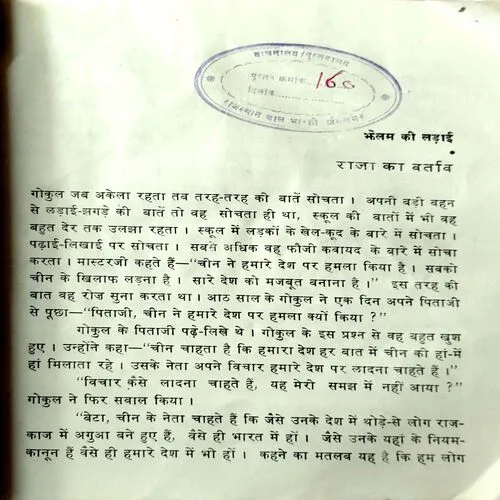 वाचनालय/पुस्तकालय
पुस्तक क्रमांक 160
दिनांक
राजस्थान बाल भारती जैसलमेर
झेलम की लड़ाई
राजा का बर्ताव
गोकुल जब अकेला रहता तब तरह-तरह की बातें सोचता । अपनी बड़ी बहन
से लड़ाई-झगड़े की बातें तो वह सोचता ही था, स्कूल की बातों में भी वह
बहुत देर तक उलझा रहता । स्कूल में लड़कों के खेल-कूद के बारे में सोचता ।
पढ़ाई-लिखाई पर सोचता । सबसे अधिक वह फौजी कवायद के बारे में सोचा
करता । मास्टरजी कहते हैं—“चीन ने हमारे देश पर हमला किया है । सबको
चीन के खिलाफ लड़ना है । सारे देश को मजबूत बनाना है ।” इस तरह की
बात वह रोज सुना करता था । आठ साल के गोकुल ने एक दिन अपने पिताजी
से पूछा—“पिताजी, चीन ने हमारे देश पर हमला क्यों किया ?”
गोकुल के पिताजी पढ़े-लिखे थे । गोकुल के इस प्रश्न से वह बहुत खुश
हुए । उन्होंने कहा—“चीन चाहता है कि हमारा देश हर बात में चीन की हां-में
हां मिलाता रहे । उसके नेता अपने विचार हमारे देश पर लादना चाहते हैं ।”
“विचार कैसे लादना चाहते हैं, यह मेरी समझ में नहीं आया ?”
गोकुल ने फिर सवाल किया ।
“बेटा, चीन के नेता चाहते हैं कि जैसे उनके देश में थोड़े-से लोग राज-
काज में अगुआ बने हुए हैं, वैसे ही भारत में हों । जैसे उनके यहां के नियम-
कानून हैं वैसे ही हमारे देश में भी हों । कहने का मतलब यह है कि हम लोग